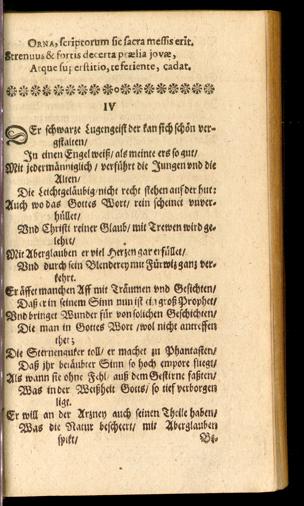 ORNA, scriptorum sic sacra messis erit.
Strenuus & fortis decerta prælia jovæ,
Atque superstitio, te feriente, cadat.
IV
DEr schwarze Lugengeist der kan sich schön ver-
gstalten/
In einen Engel weiß/ als meinte ers so gut/
Mit jedermänniglich / verführt die Jungen vnd die
Alten/
Die Leichtgeläubig/ nicht recht stehen auf der hut:
Auch wo das Gottes Wort/ rein scheinet vnver-
hüllet/
Vnd Christi reiner Glaub/ mit Trewen wird ge-
lehrt/
Mit Aberglauben er viel Herzen gar erfüllet/
Vnd durch sein Blenderey mit Fürwiz ganz ver-
kehrt.
Er äffet manchen Aff mit Träumen vnd Gesichten/
Daß er in seinem Sinn nun ist ein groß Prophet/
Vnd bringet Wunder für von solichen Geschichten/
Die man in Gottes Wort /wol nicht antreffen
thet;
Die Sternenguker toll/ er machet zu Phantasten/
Daß ihr betäubter Sinn so hoch empore fliegt/
Als wann sie ohne Fehl/ auß dem Gestirne faßten/
Was in der Weißheit Gotts/ so tief verborgen
ligt.
Er will an der Arzney auch seinen Theile haben/
Was die Natur beschert/ mit Aberglauben
spikt/